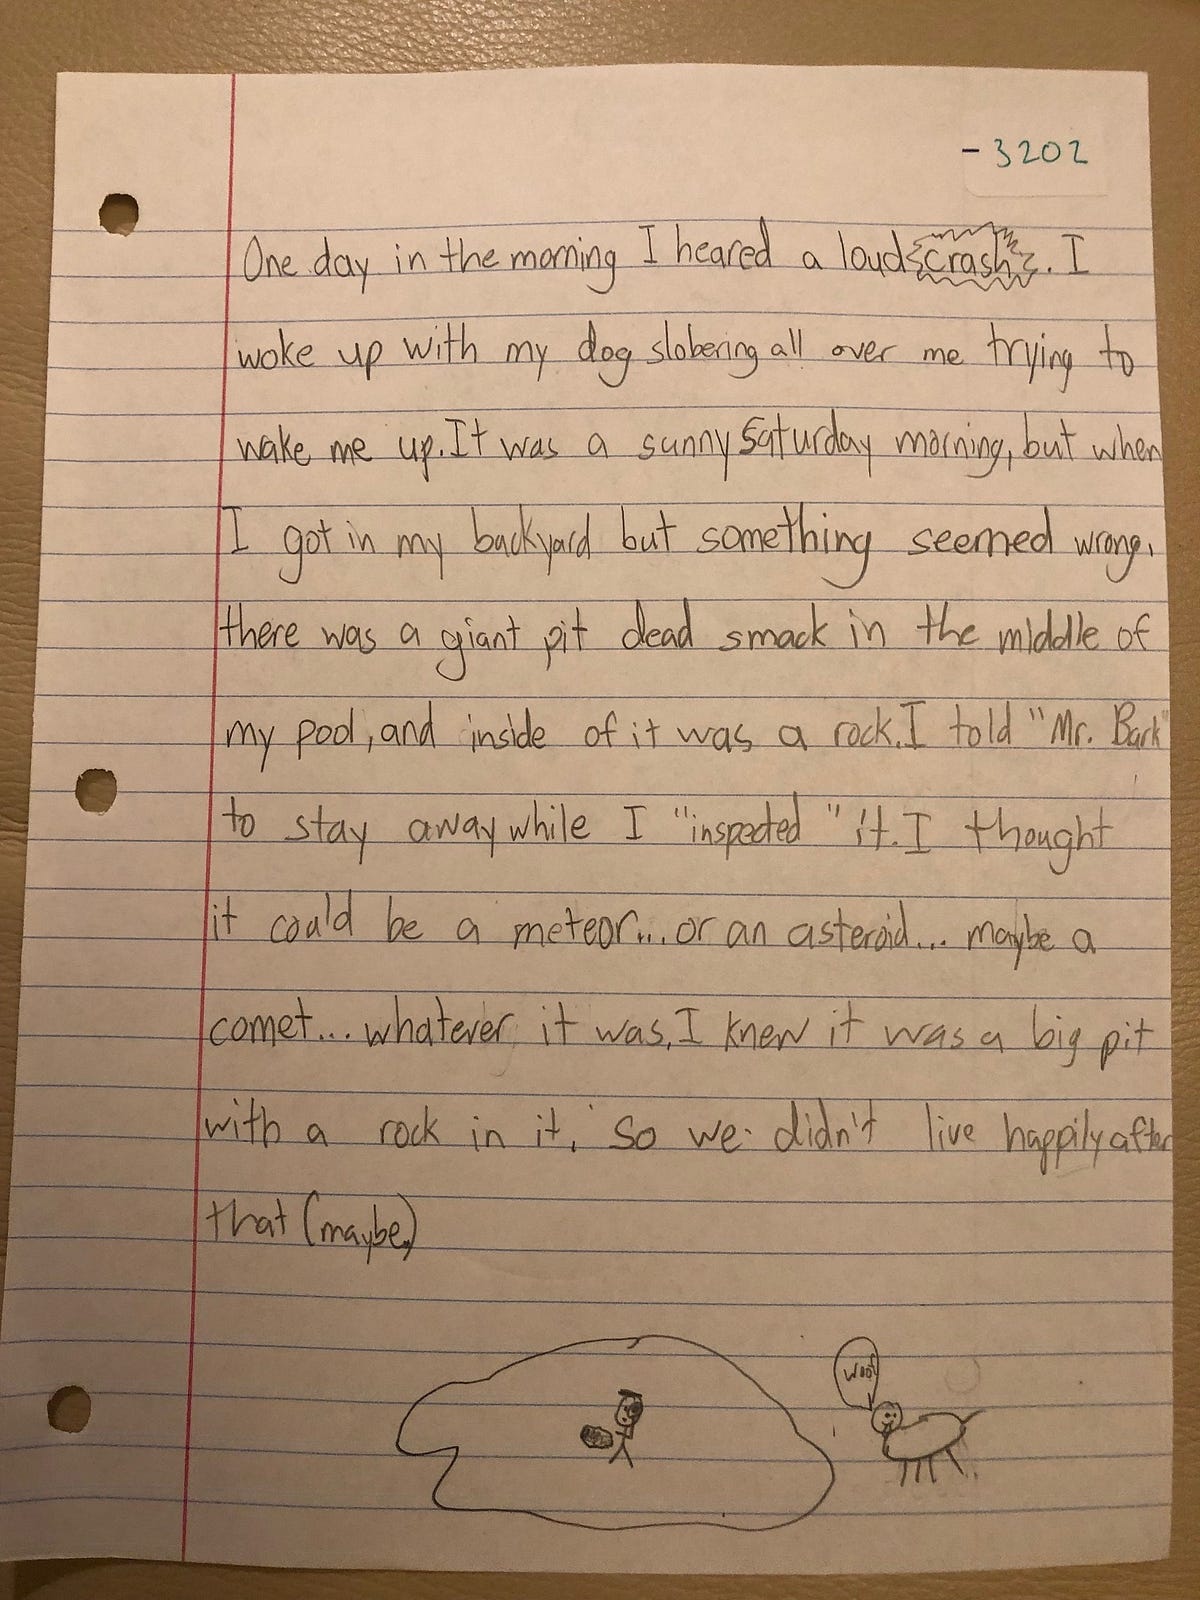 - 3202
One day in the morning I heared a loud crash. I
woke up with my dog slobering all over me trying to
wake me up. It was a sunny Saturday morning, but when
I got in my backyard but something seemed wrong,
there was a giant pit dead smack in the middle of
my pool, and inside of it was a rock. I told "Mr. Bark"
to stay away while I "inspected" it. I thought
it could be a meteor... or an asteroid... maybe a
comet... whatever it was, I knew it was a big pit
with a rock in it. So we didn't live happily after
that (maybe)
Woof